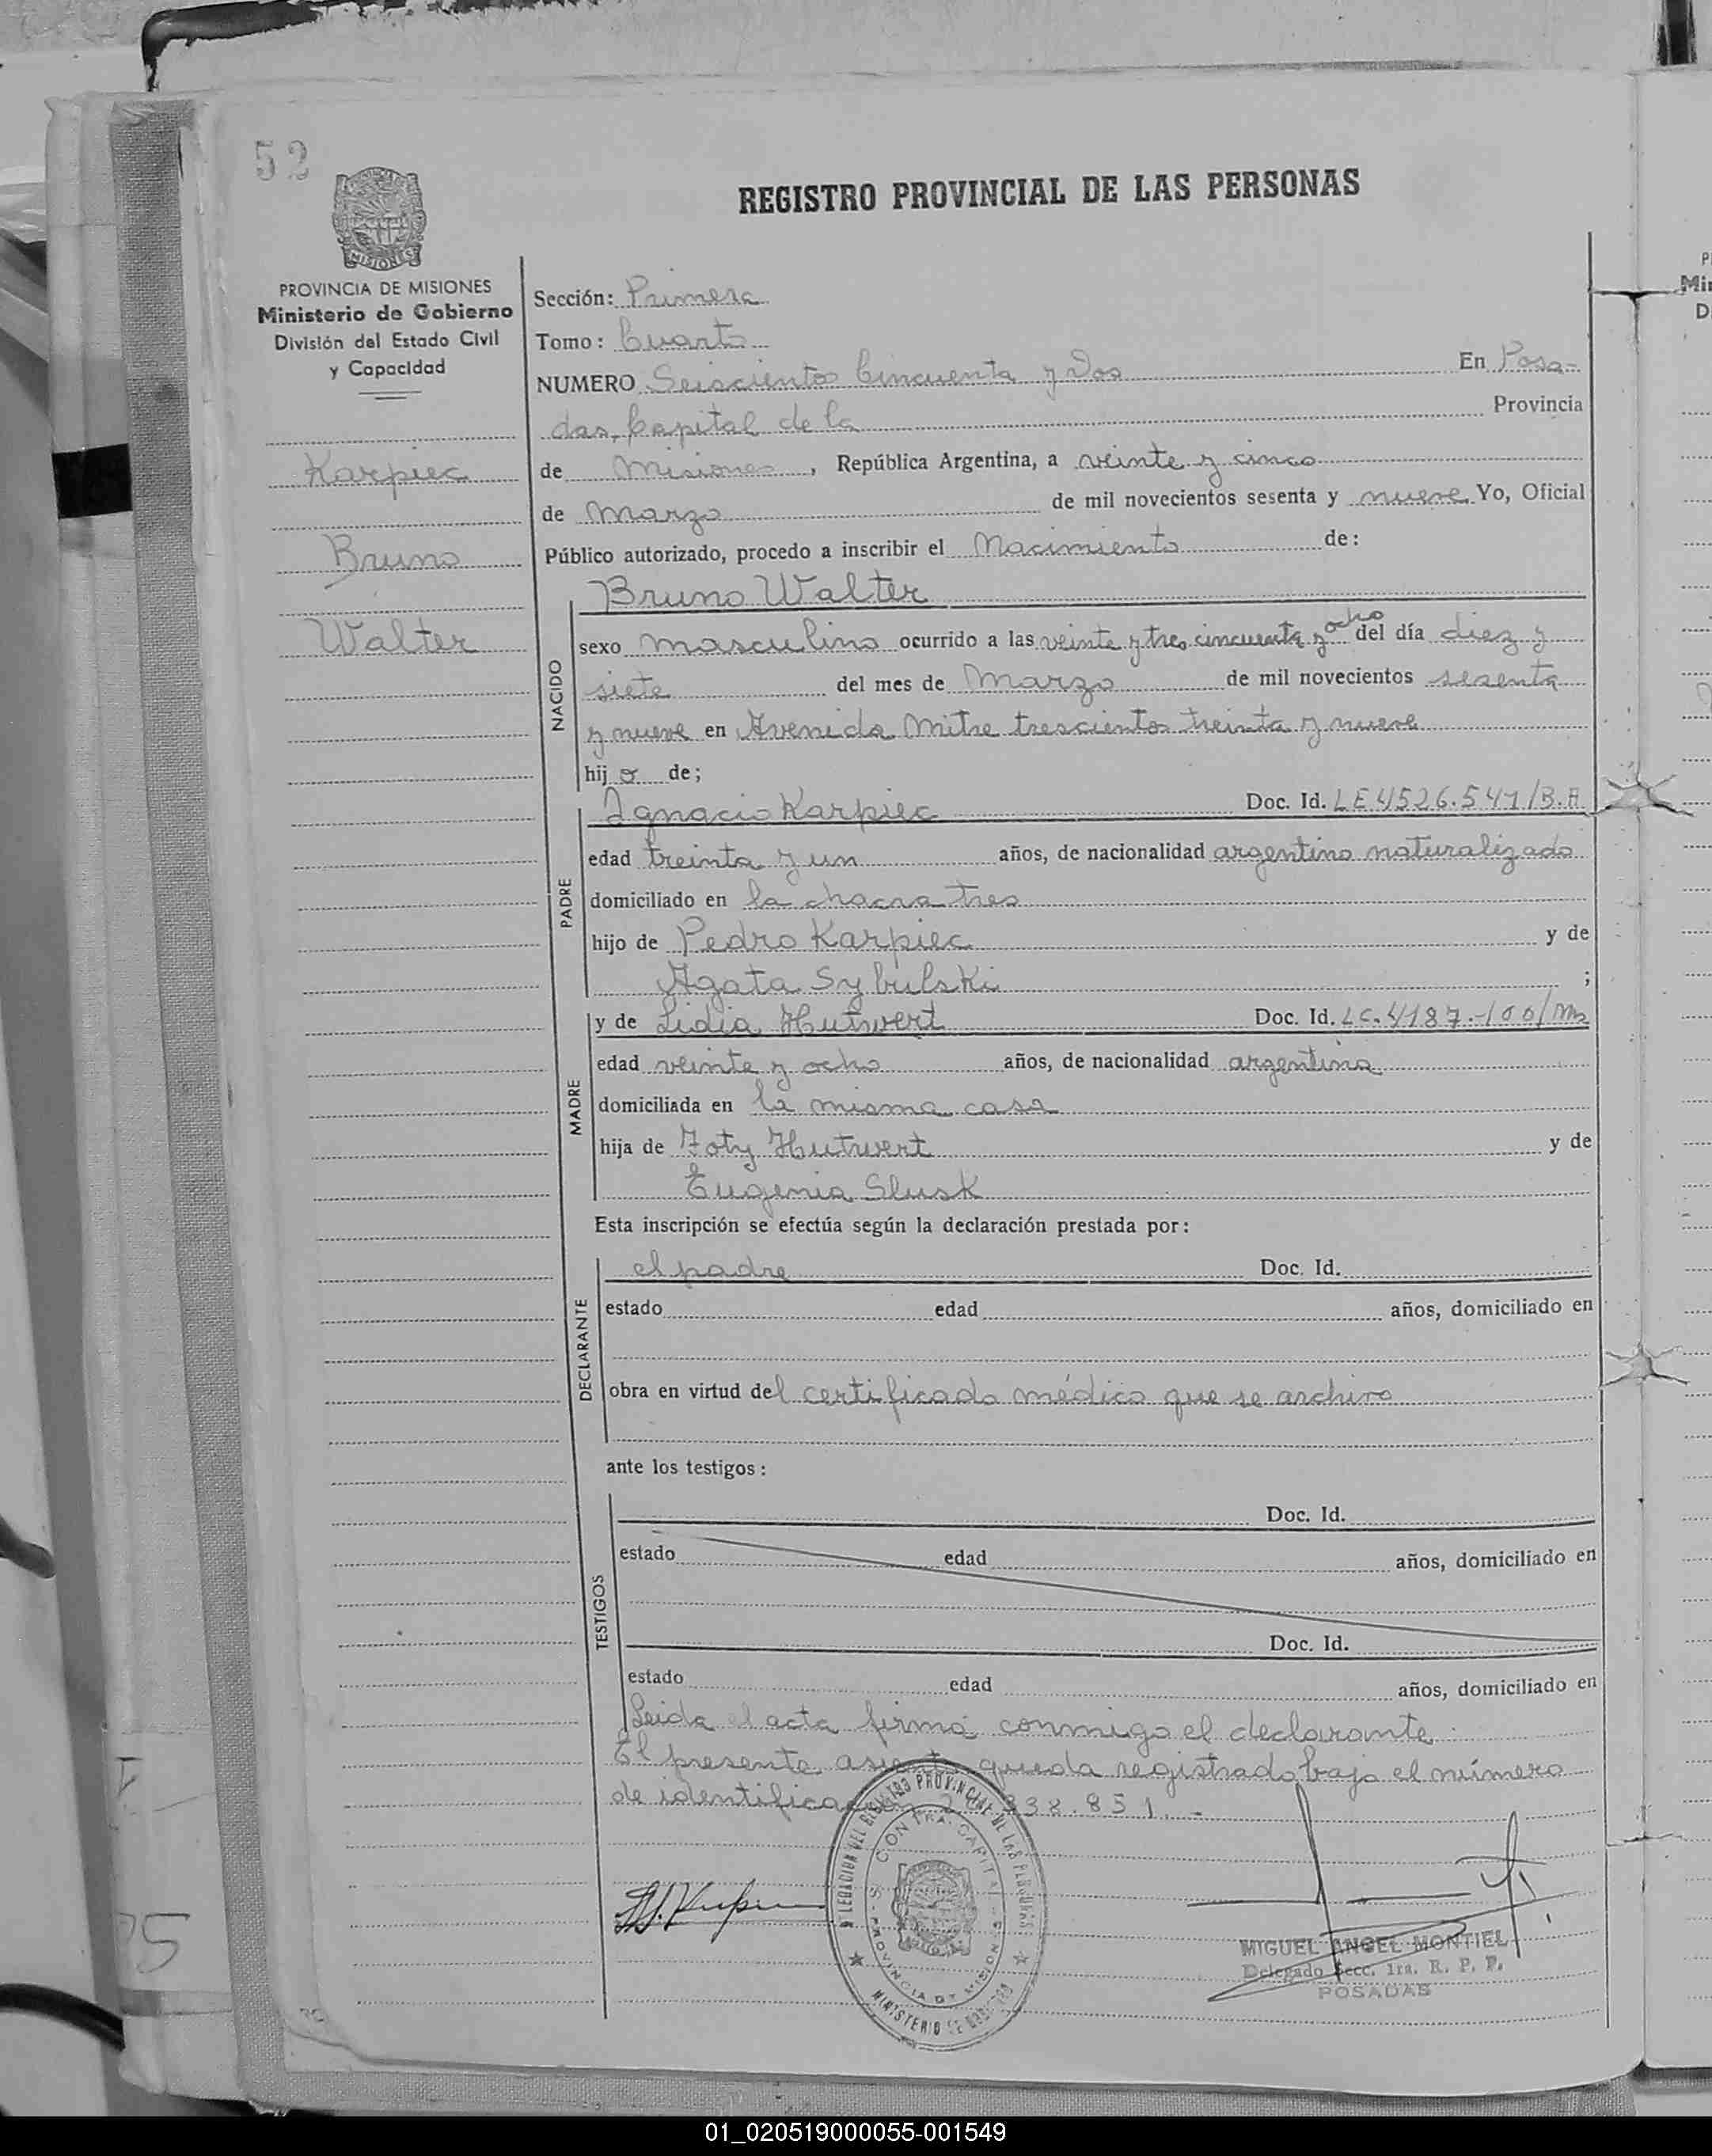 52
REGISTRO PROVINCIAL DE LAS PERSONAS
MISIONES
PROVINCIA DE MISIONES
Ministerio de Gobierno
División del Estado Civil
y Capacidad
Karpiec
Bruno
Walter
Sección: Primera
Tomo: Cuarto
NUMERO Seiscientos Cincuenta y Dos En Posa-
das, Capital de la Provincia
de Misiones, República Argentina, a veinte y cinco
de Marzo de mil novecientos sesenta y nueve Yo, Oficial
Público autorizado, procedo a inscribir el Nacimiento de:
Bruno Walter
NACIDO
sexo masculino ocurrido a las veinte y tres cincuenta y ocho del día diez y
siete del mes de Marzo de mil novecientos sesenta
y nueve en Avenida Mitre trescientos treinta y nueve
hijo de;
PADRE
Ignacio Karpiec Doc. Id. LE 4526.541/B.A
edad treinta y un años, de nacionalidad argentino naturalizado
domiciliado en la chacra tres
hijo de Pedro Karpiec y de
Agata Sybulski ;
MADRE
y de Lidia Hutwert Doc. Id. LC.4187.100/Ms
edad veinte y ocho años, de nacionalidad argentina
domiciliada en la misma casa
hija de Foty Hutwert y de
Eugenia Slusk
Esta inscripción se efectúa según la declaración prestada por:
DECLARANTE
el padre Doc. Id.
estado edad años, domiciliado en
obra en virtud del certificado médico que se archiva
ante los testigos:
TESTIGOS
Doc. Id.
estado edad años, domiciliado en
Doc. Id.
estado edad años, domiciliado en
Leida el acta firma conmigo el declarante.
El presente asiento queda registrado bajo el número
de identificación 338.851.-
MIGUEL ANGEL MONTIEL
Delegado Secc. 1ra. R. P. P.
POSADAS
01_020519000055-001549